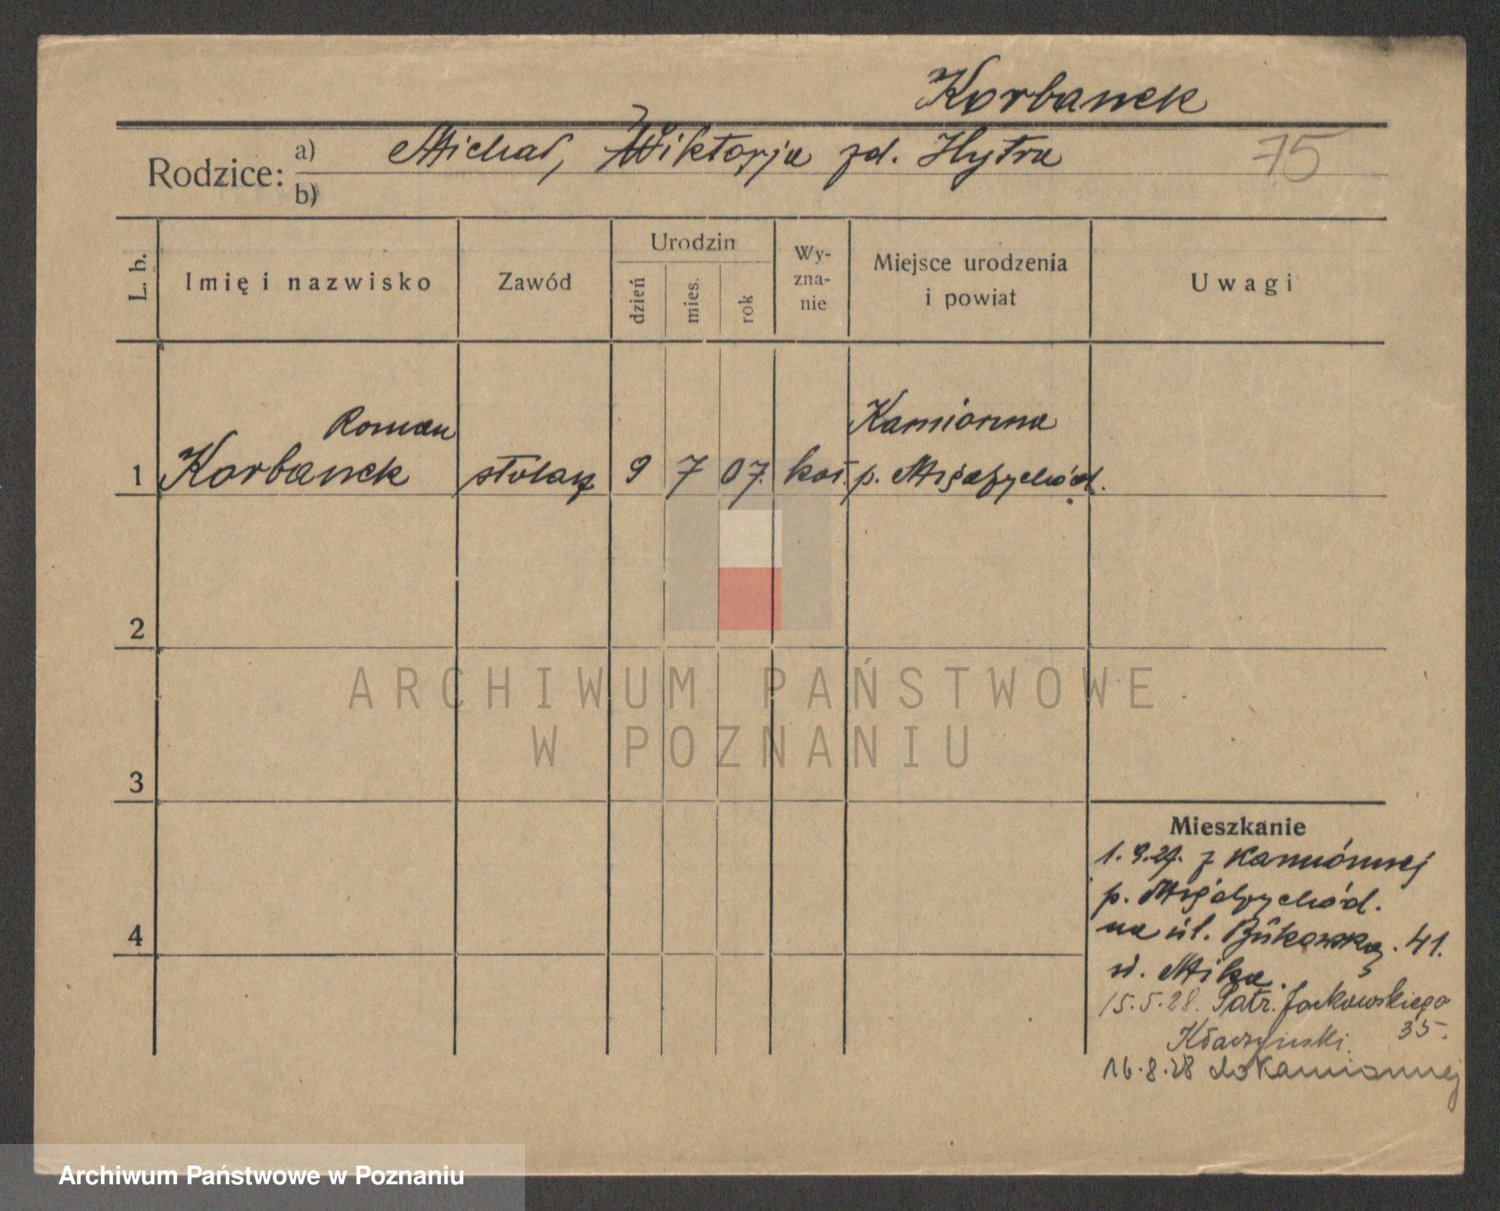 Korbanek
Rodzice: a) Michał, Wiktorja zd. Hytra 75
b)
L. b. Imię i nazwisko Zawód Urodzin dzień mies. rok Wy-zna-nie Miejsce urodzenia i powiat Uwagi
Roman Kamionna
1 Korbanek stolarz 9 7 07. kat. p. Międzychód.
2
ARCHIWUM PAŃSTWOWE
W POZNANIU
3
Mieszkanie
1.9.27. z Kamionnej
p. Międzychód.
4
na ul. Bukowską. 41.
u. Mika.
15.5.28. Patr. Jackowskiego
35.
16.8.28 do Kamionnej
Archiwum Państwowe w Poznaniu